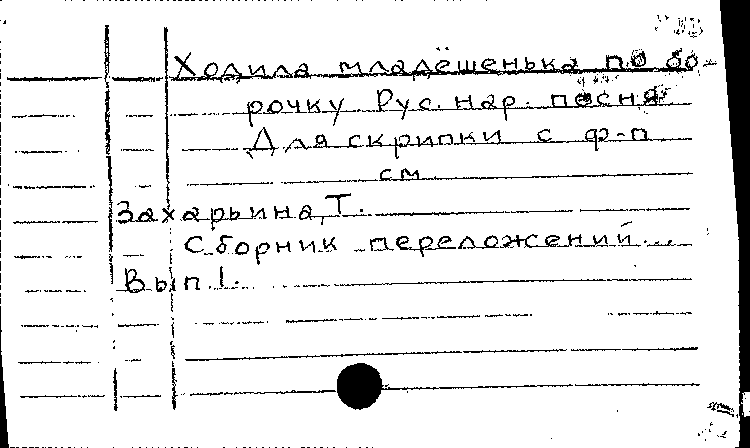 Ходила младёшенька по бо-
рочку Рус. нар. песня
Для скрипки с ф-п
см
Захарьина, Т.
Сборник переложений...
Вып. I.